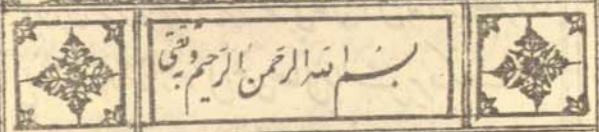 بسم الله الرحمن الرحيم وبه ثقتي